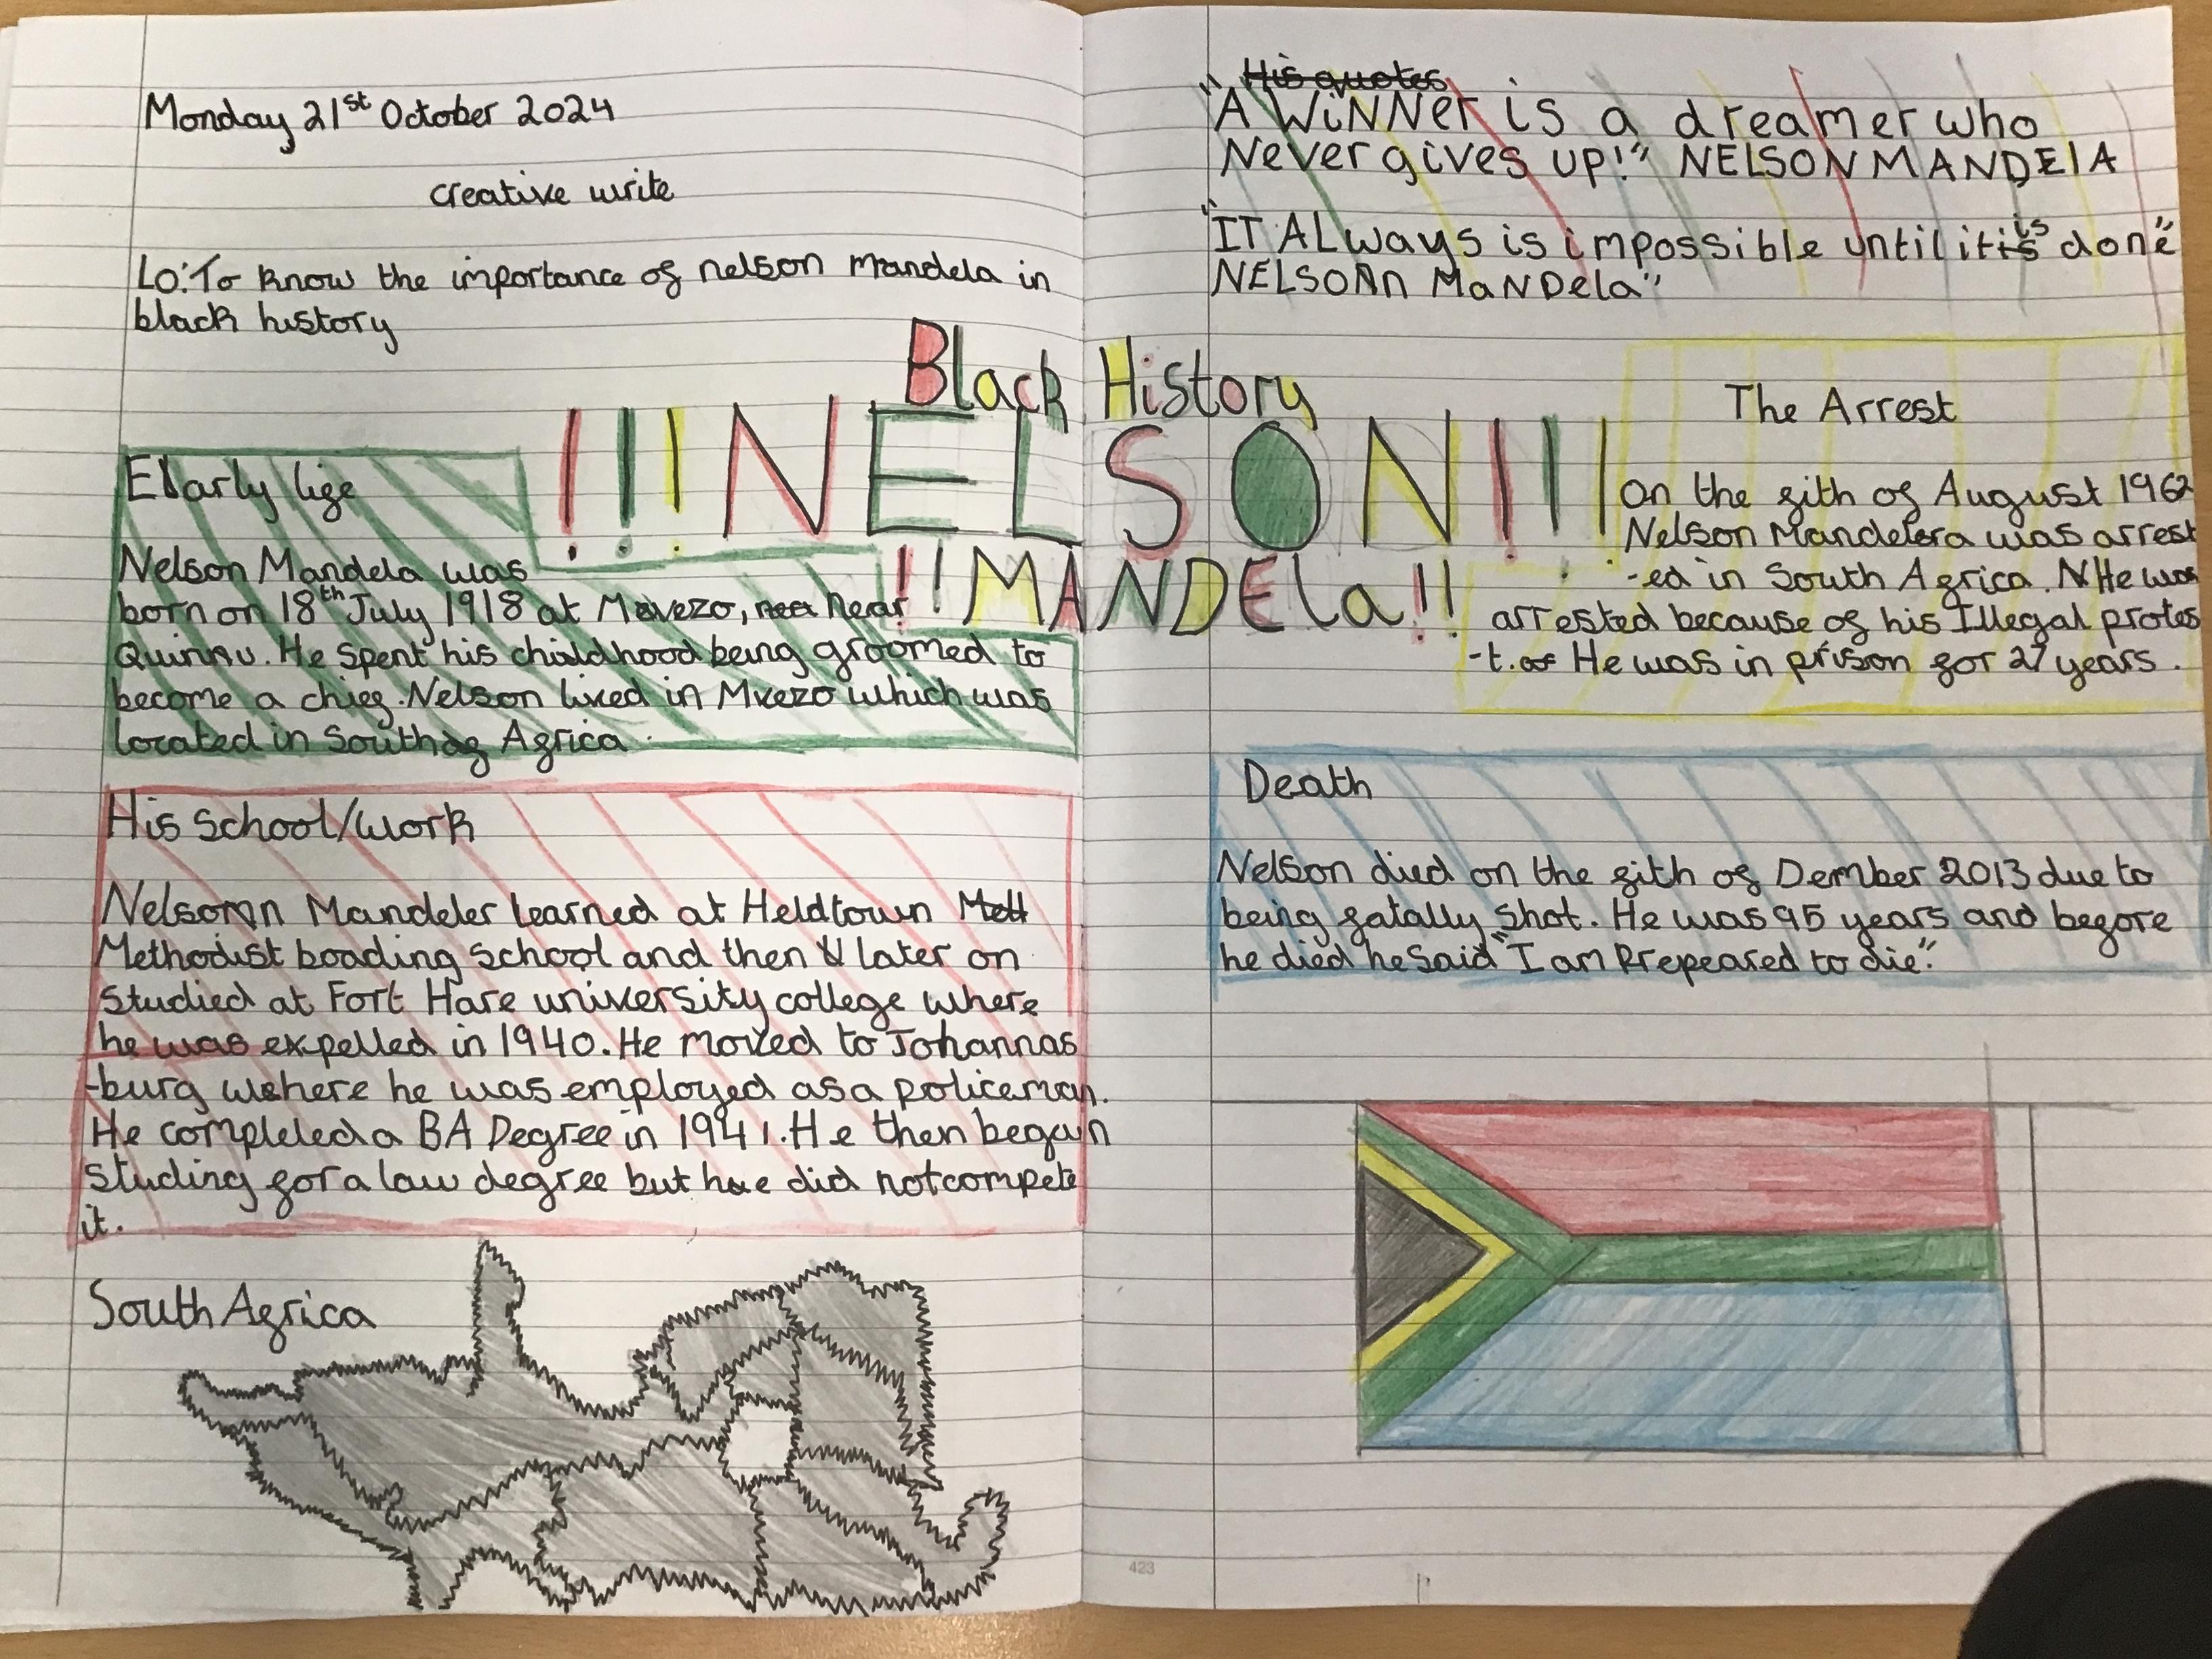 Monday 21st October 2024
creative write
LO: To know the importance of nelson mandela in
black history
Black History
!!!NELSON!!!
!!MANDELa!!
Early life
Nelson Mandela was
born on 18th July 1918 at Mevezo, near
Quinnu. He spent his childhood being groomed to
become a chief. Nelson lived in Mvezo which was
located in South Africa.
His School/work
Nelsonn Mandeler learned at Heldtown
Methodist boading school and then later on
studied at Fort Hare university college where
he was expelled in 1940. He moved to Johannas
-burg where he was employed as a policeman.
He completed a BA Degree in 1941. He then began
studing for a law degree but he did not compete
it.
South Africa
His quotes
"A WiNNer is a dreamer who
Never gives up!" NELSON MANDElA
"IT ALways is impossible until it is done"
NELSOnn MaNDela"
The Arrest
On the fith of August 1962
Nelson Mandelera was arrest
-ed in South Africa. He was
arrested because of his Illegal protes
-t. He was in prison for 27 years.
Death
Nelson died on the fith of Dember 2013 due to
being fatally shot. He was 95 years and before
he died he said "I am Prepeared to die."
423